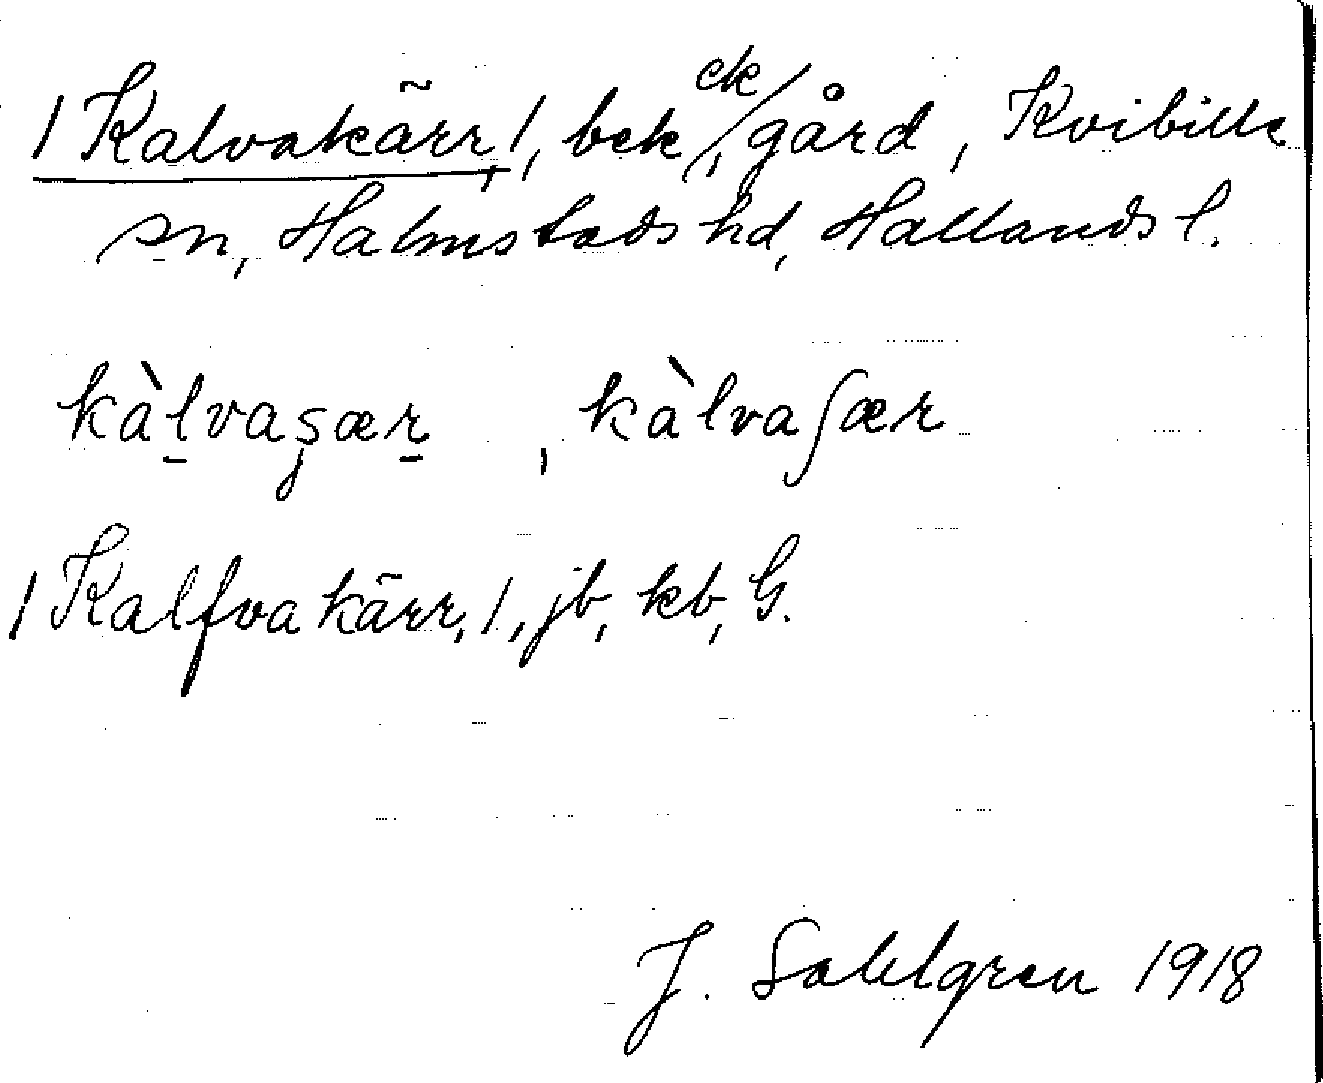 / Kalvakärr, /, bek, ck/ gård, Kvibille
sn, Halmstads hd, Hallands l.
kàl̠vaşær̠ , kàlvaʃær
/ Kalfvakärr, /, jb, kb, G.
J. Sahlgren 1918